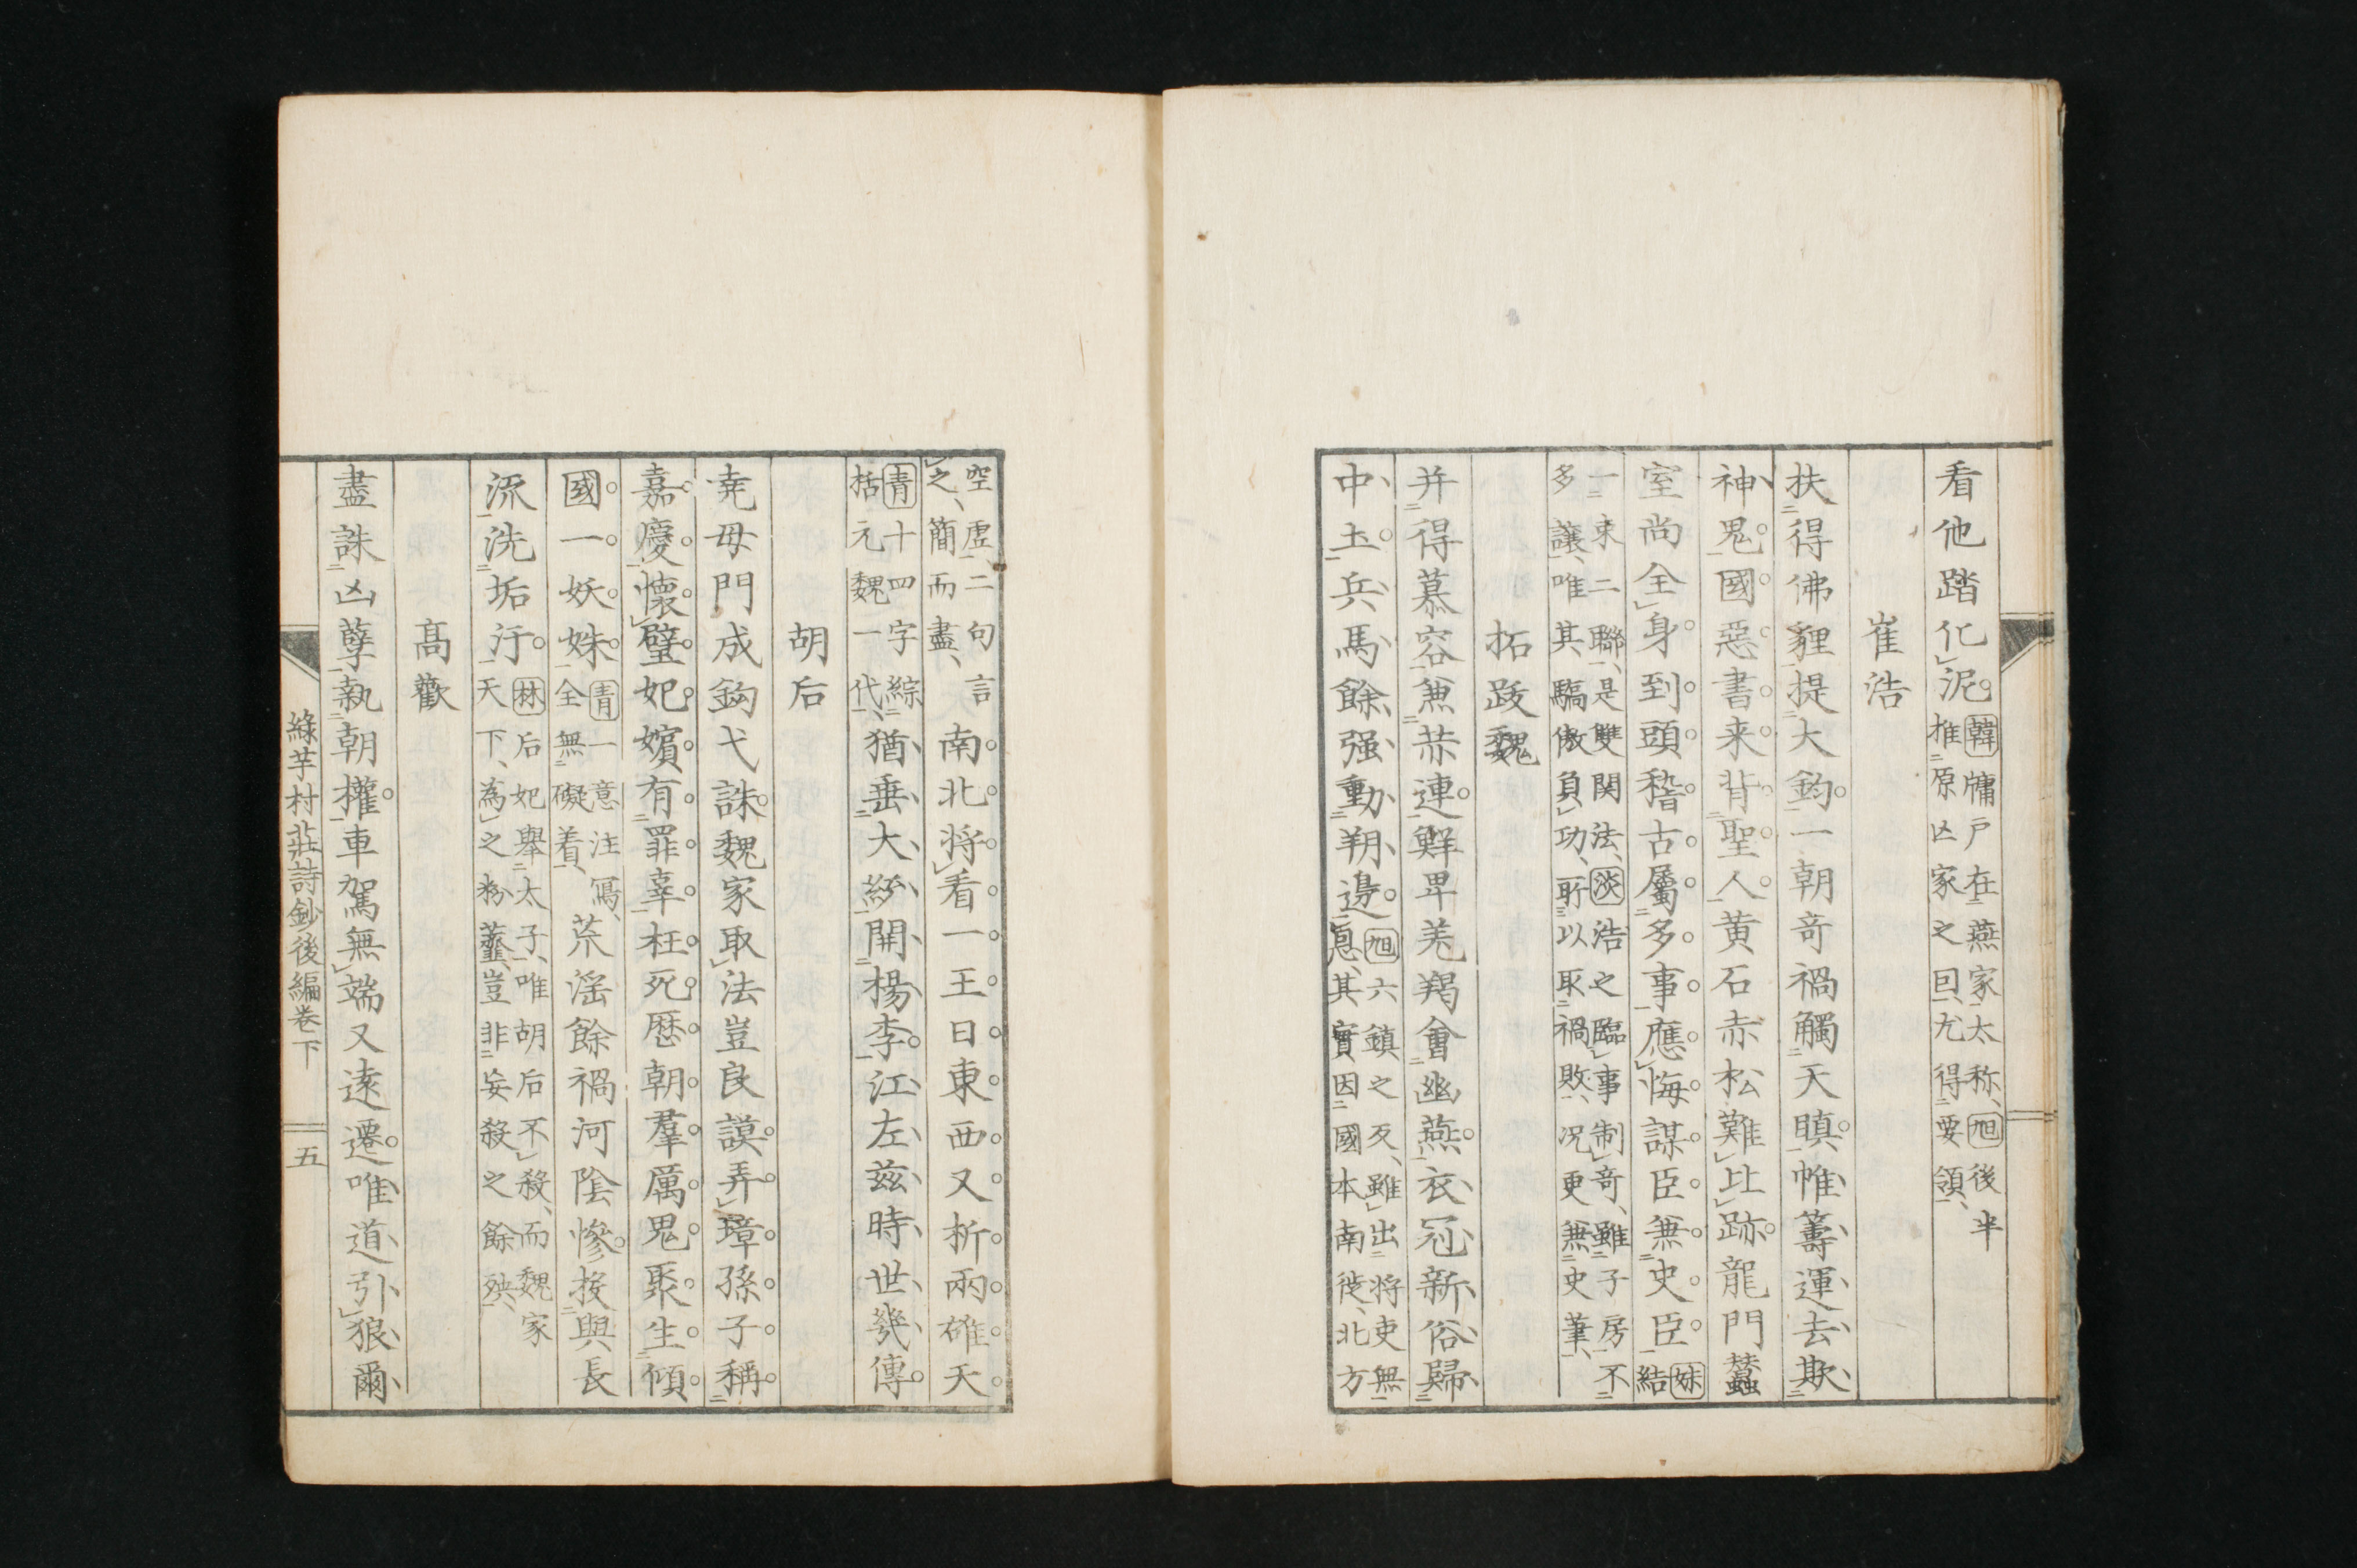 看他踏化泥韓牗戸在燕家太称旭後半
推原凶家之囙尤得要領
崔浩
扶得佛貍提大鈞一朝奇禍觸天瞋帷籌運去欺
神鬼國惡書来背聖人黄石赤松難比跡龍門蠶
室尚全身到頭稽古屬多事應悔謀臣兼史臣妹
結
一束二聯是雙関法淡浩之臨事制奇雖子房不
多譲唯其驕傲負功所以取禍敗况更兼史筆
拓跋魏
并得慕容兼赫連鮮卑羌羯會幽燕衣冠新俗歸
中土兵馬餘强動朔邊旭六鎮之叐雖出将吏無
息其實因國本南徙北方
空虚二句言
之簡而盡南北将看一王日東西又析兩碓天
青十四字綜
括元魏一代猶垂大統開楊李江左茲時世幾傳
胡后
尭母門成鈎弋誅魏家取法豈良謨弄璋孫子稱
嘉慶懐璧妃嬪有罪辜枉死歴朝羣厲鬼聚生傾
國一妖姝青一意注寫
全無礙着荒淫餘禍河陰慘投與長
流洗垢汙林后妃舉太子唯胡后不殺而魏家
天下為之粉虀豈非妄殺之餘殃
髙歡
盡誅凶孽執朝權車駕無端又逺遷唯道引狼爾
緑芋村荘詩鈔後編巻下
五